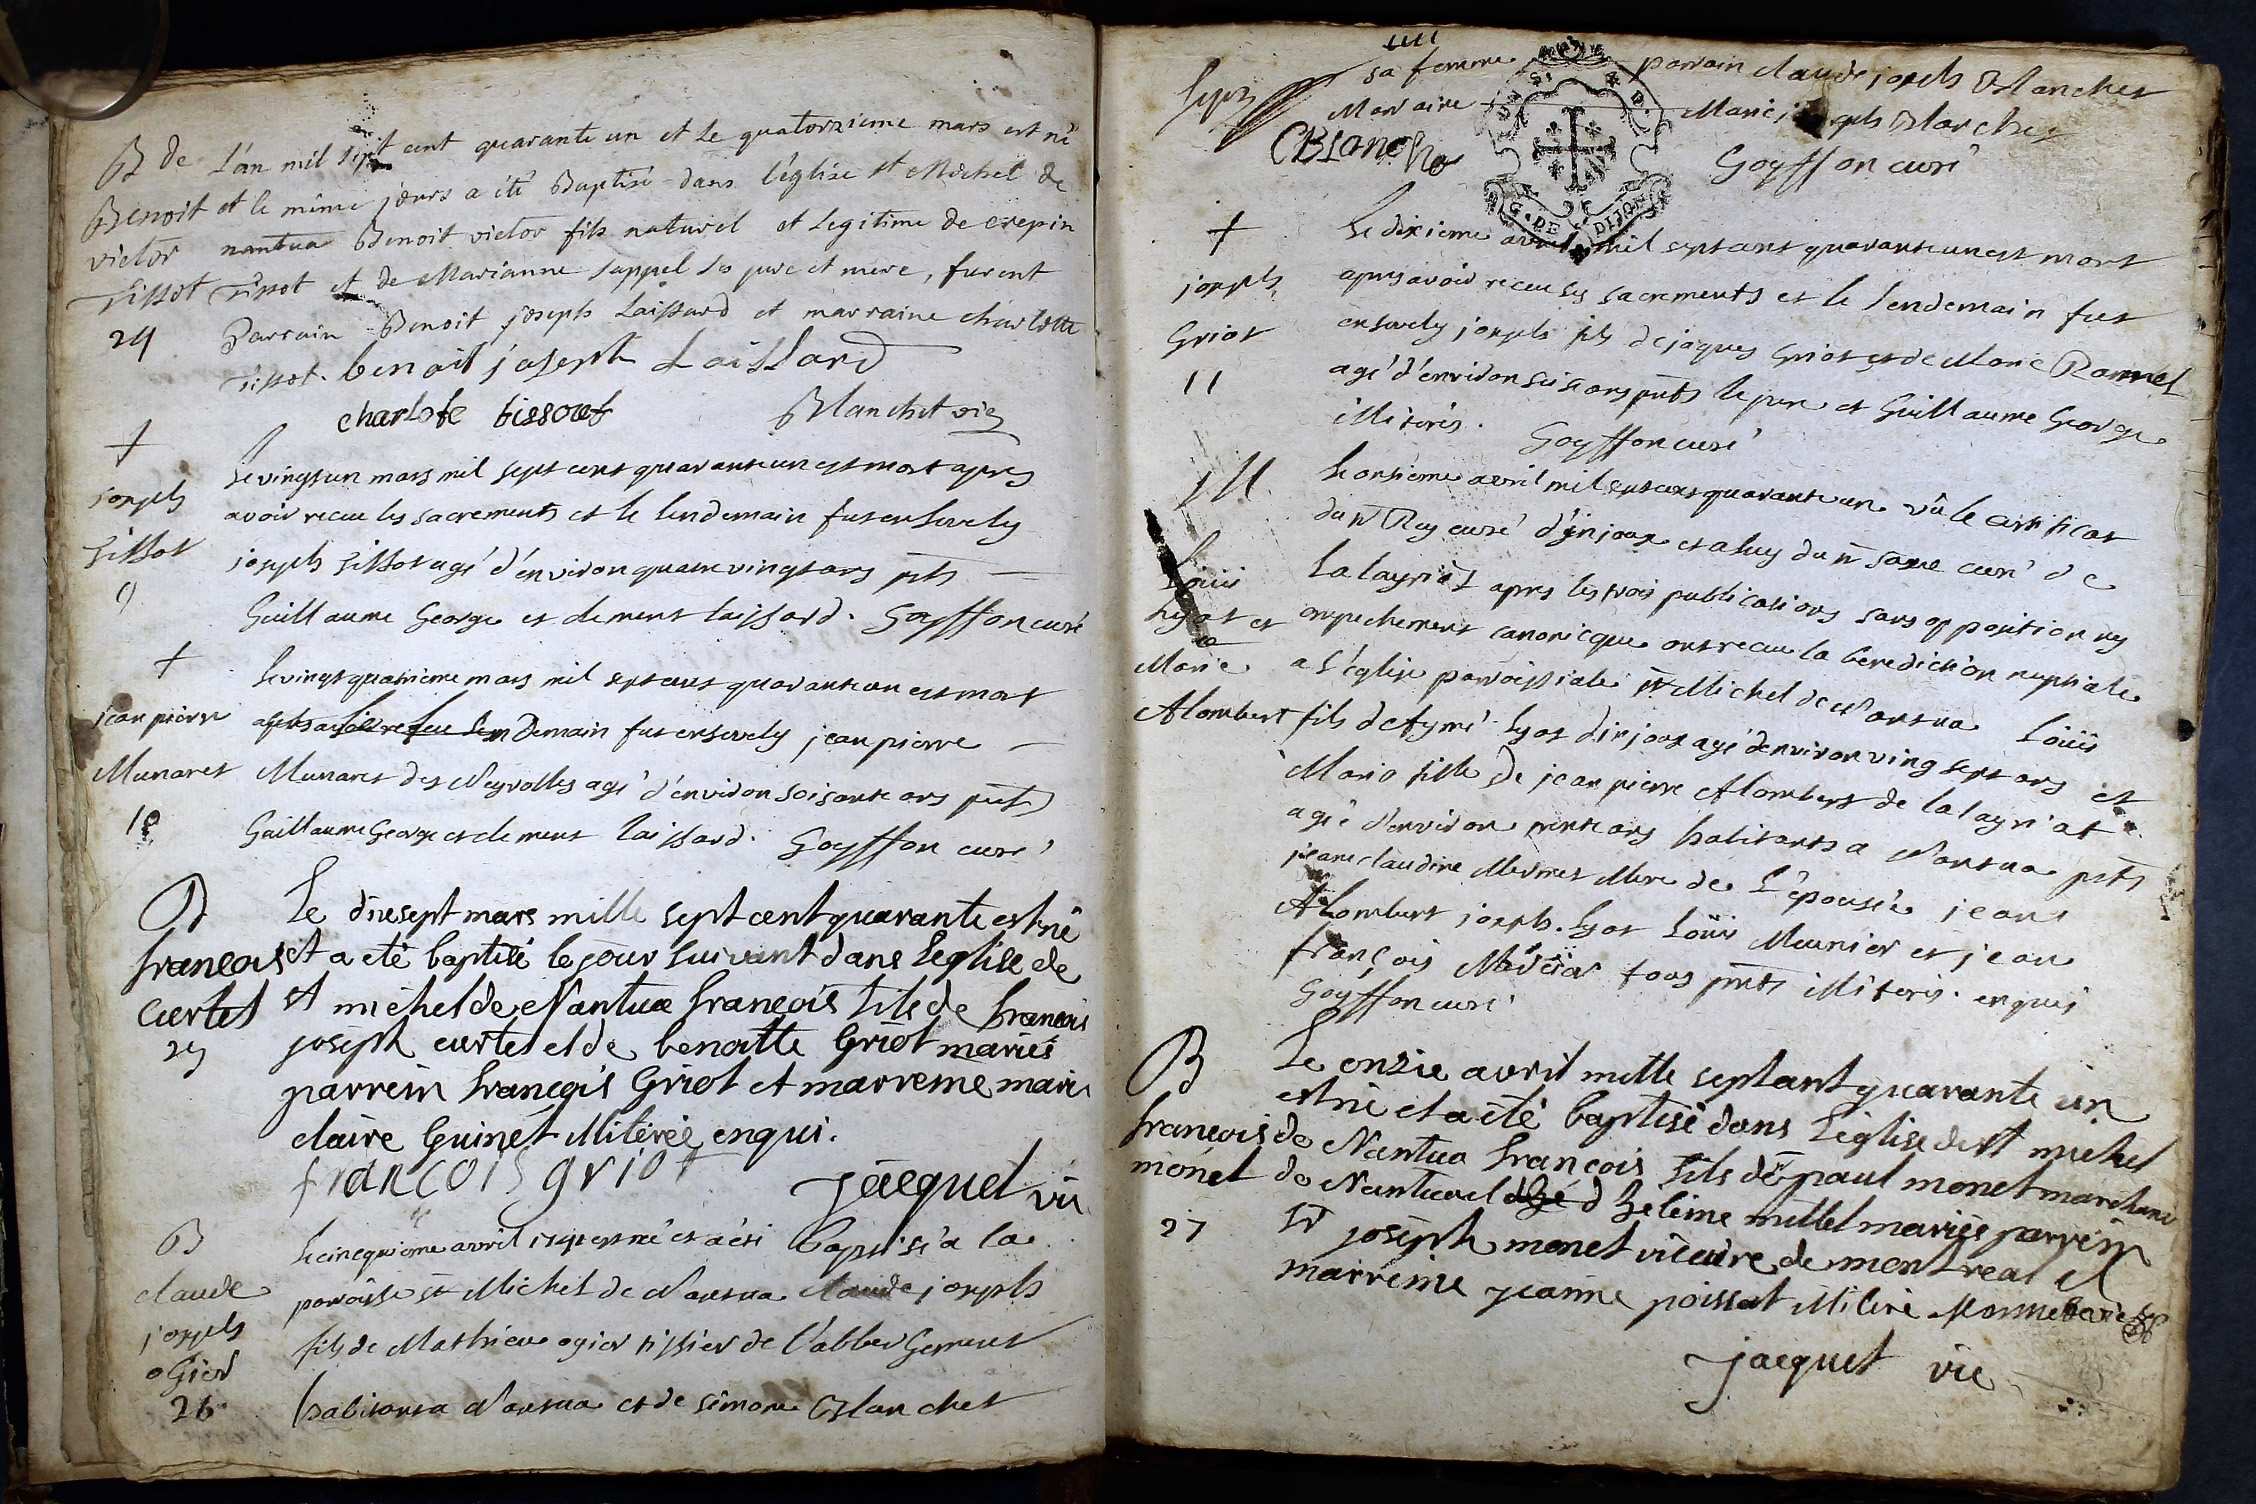 B de L'an mil sept cent quarante un et Le quatorzieme mars est né
Benoit et le même jours a été Baptisé dans l'église st Michel de
victor nantua Benoit victor fils naturel et legitime de crepin
Tissot Tissot et de Marianne sappel ses pere et mere, furent
24 Parrain Benoit joseph Laissard et marraine charlotte
Tissot. benoit joseph Laissard
charlote tissout Blanchet vic
+ Le vingt un mars mil sept cent quarante un est mort apres
joseph avoir receu les sacrements et le lendemain fut ensevely
tissot joseph tissot agé d'environ quatre vingt ans pnts
9 Guillaume George et clement laissard. Goyffon curé
+ Le vingt quatrieme mars mil sept cent quarante un est mort
jean pierre lendemain fut ensevely jean pierre
Munaret Munaret des Neyrolles agé d'environ soisante ans pnts
10 Guillaume George et clement laissard. Goyffon curé
B Le diesept mars mille sept cent quarante est né
francois et a eté baptisé le jour suivant dans Leglise de
Curtet st michel de Nantua françois fils de francois
25 joseph curtet et de benoitte Griot mariés
parrein françois Griot et marreine marie
claire Guinet Militéreé enqui.
françois griot jacquet vic
B Le cinequieme avril 1741 est né et a été baptisé a la
claude paroisse st Michel de Nantua claude joseph
joseph fils de Mathieu ogier tissier de l'abbergement
ogier
26 habitant a Nantua et de simone Blanchet
sa femme parrain claude joseph Blanchet
Maraine Marie joseph Blanchet
CBlanche Goyffon curé
+ Le dixieme avril mil sept cent quarante un est mort
joseph apres avoir receu ses sacrements et le lendemain fut
Griot ensevely joseph fils de jaques Griot et de Marie Ravinet
11 agé d'environ seise ans pnts le pere et Guillaume George
illiterés. Goyffon curé
Le onsieme avril mil sept cent quarante un vû le certificat
du Sr Rey curé d'injoux et celuy du Sr curé de
Loüis Lalayriat apres les trois publications sans opposition ny
Lyot et empechement canonicque ont receu la benediction nuptiale
Marie a l'église paroissiale st Michel de Nantua Loüis
Alombert fils d'Aymé Lyot d'injoux agé d'environ vingt sept ans et
Marie fille de jean pierre Alombert de lalayriat
agée d'environ trente ans habitants a Nantua pnts
jeane claudine Mermet Mere de L'epousée jean
Alombert joseph Lyot Loüis Meunier et jean
françois Mercier tous pnts illiterés. enquis
Goyffon curé
B Le onzie avril mille septant quarante un
est né et a été baptisé dans Léglise de st michel
francois de Nantua françois fils de paul monet marchand
monet de Nantua et d heléine millet mariés parrein
27 Sr joseph monet vicaire de montreal et
marreine jeanne poissat
jacquet vic
G. DE DIJON